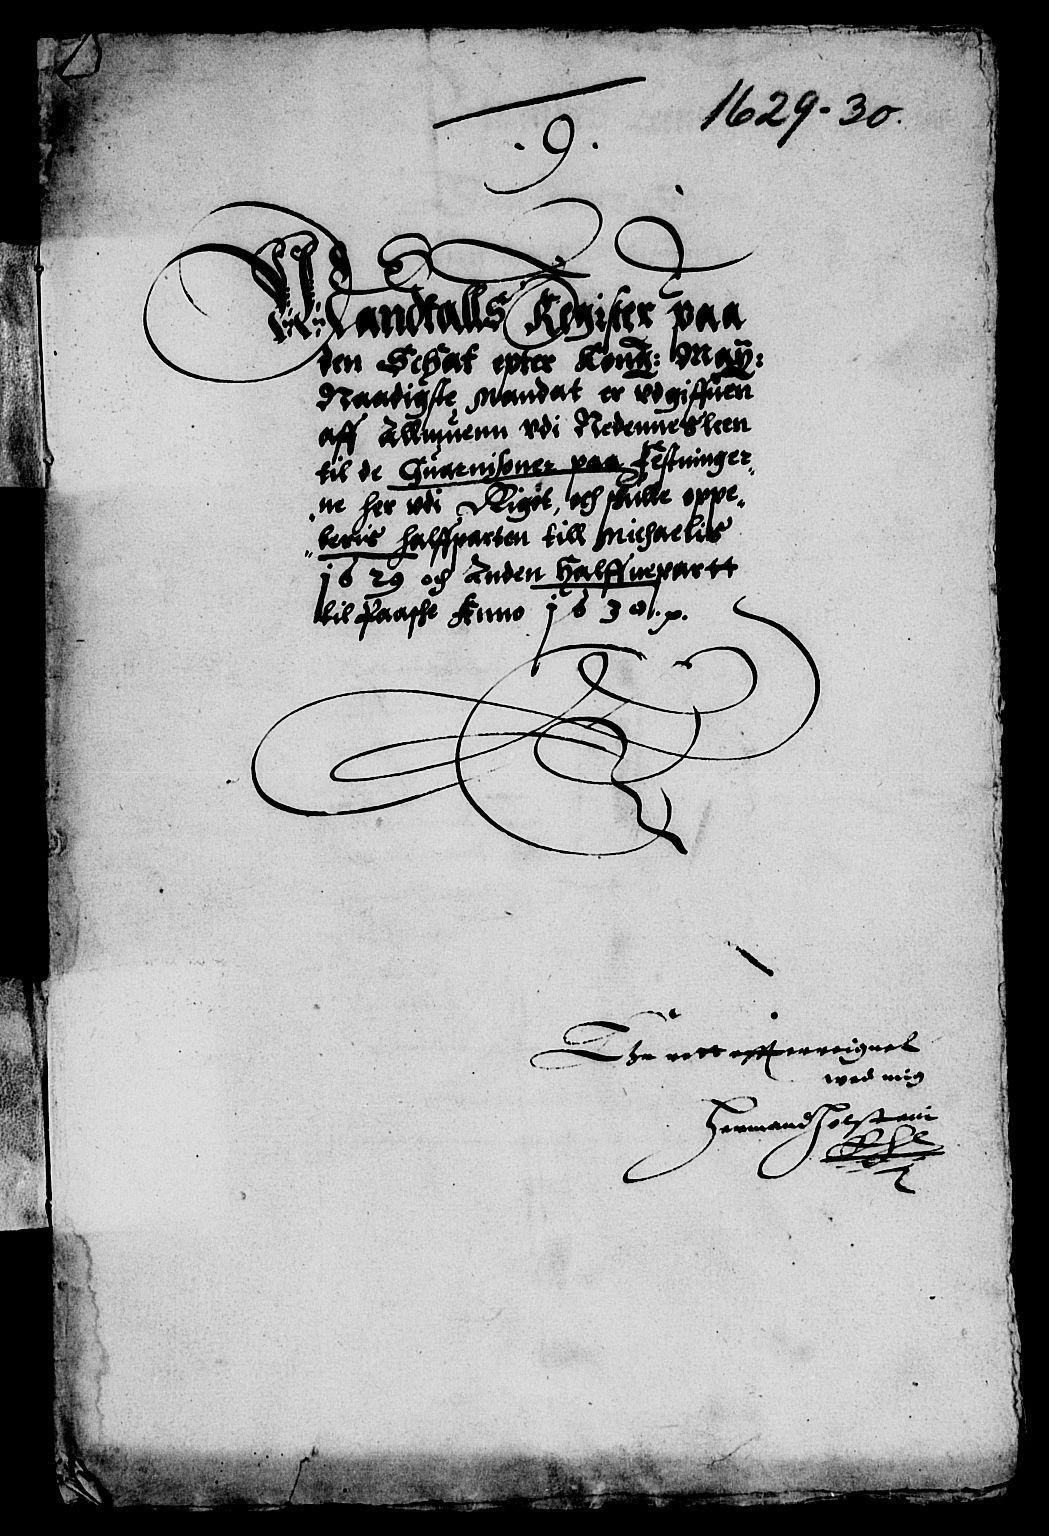 1629-30.
. 9 .
Mandtalls Register paa
den Schat epter Kong: May:
Naadigste Mandat er vdgiffuen
aff Allmuenn vdi Nedennesleen
til de Guarnisoner paa Festninger„
„ne her vdi Rigit, och skulle oppe„
„beris halffparten till Michaelis
1629 och Anden Halffuepartt
til Paaske Anno 1630.p.
wed mig
Hermand Holstein